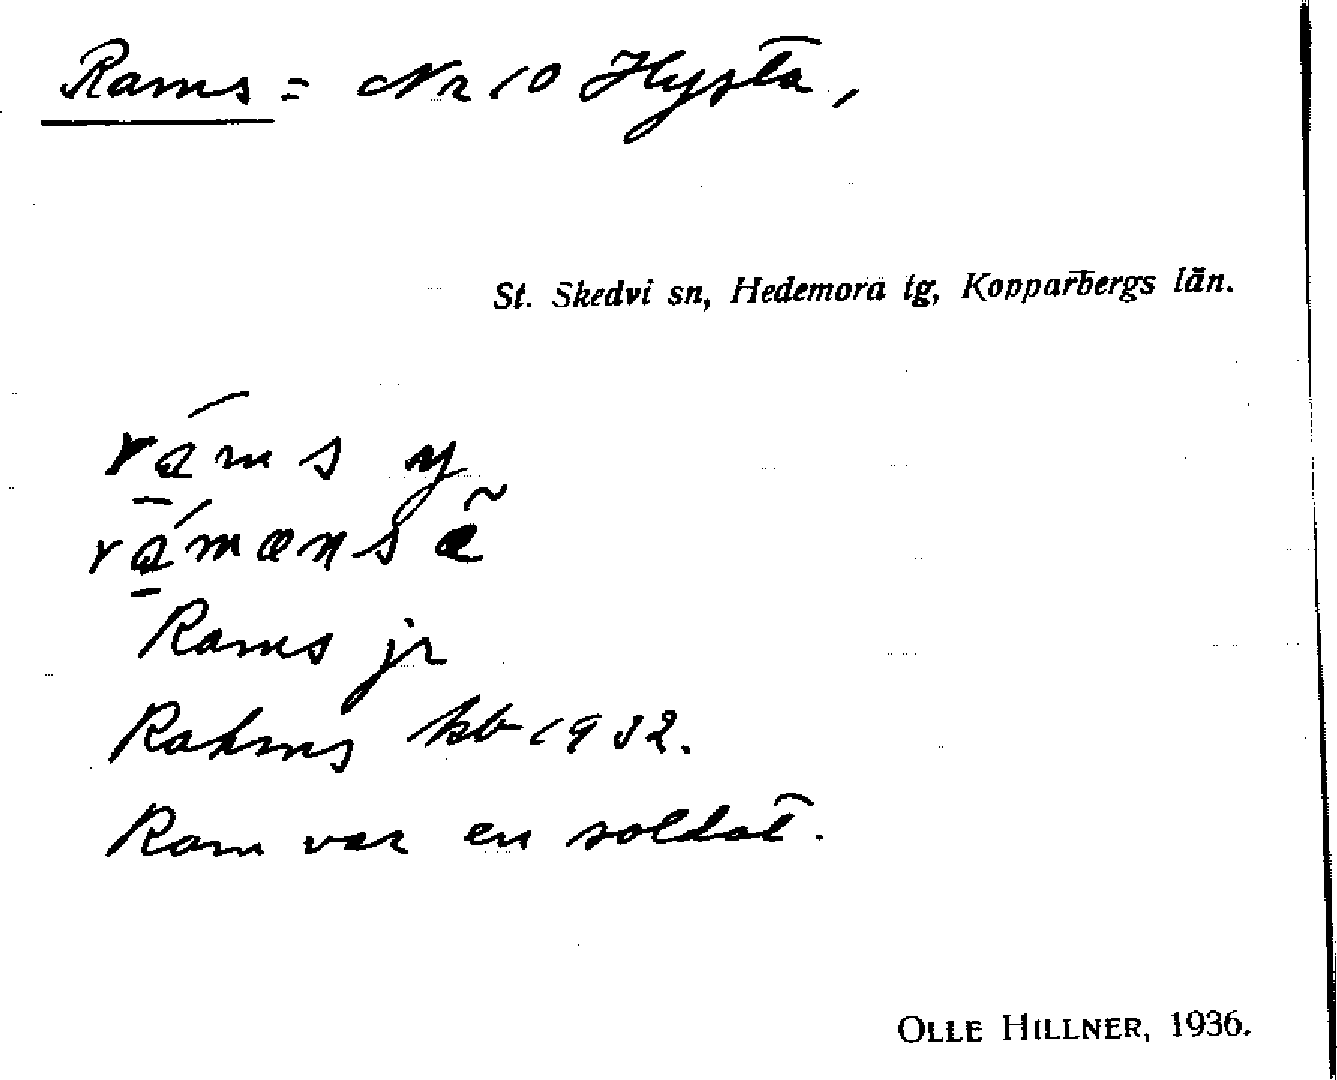 Rams = Nr 10 Hysta,
St. Skedvi sn, Hedemora tg, Kopparbergs län.
ráms y
rámænsã
Rams jr
Rahms kb 1932.
Ram var en soldat.
OLLE HILLNER, 1936.